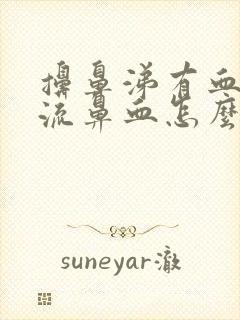 擤鼻涕有血
流鼻血怎麼
suneyar澈